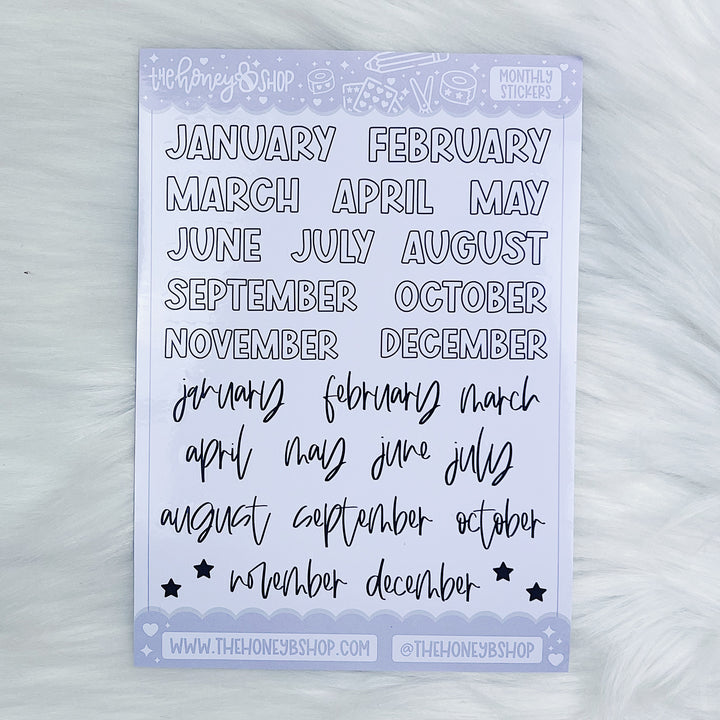 thehoneyB SHOP
MONTHLY
STICKERS
JANUARY FEBRUARY
MARCH APRIL MAY
JUNE JULY AUGUST
SEPTEMBER OCTOBER
NOVEMBER DECEMBER
january february march
april may june july
august september october
november december
WWW.THEHONEYBSHOP.COM @THEHONEYBSHOP